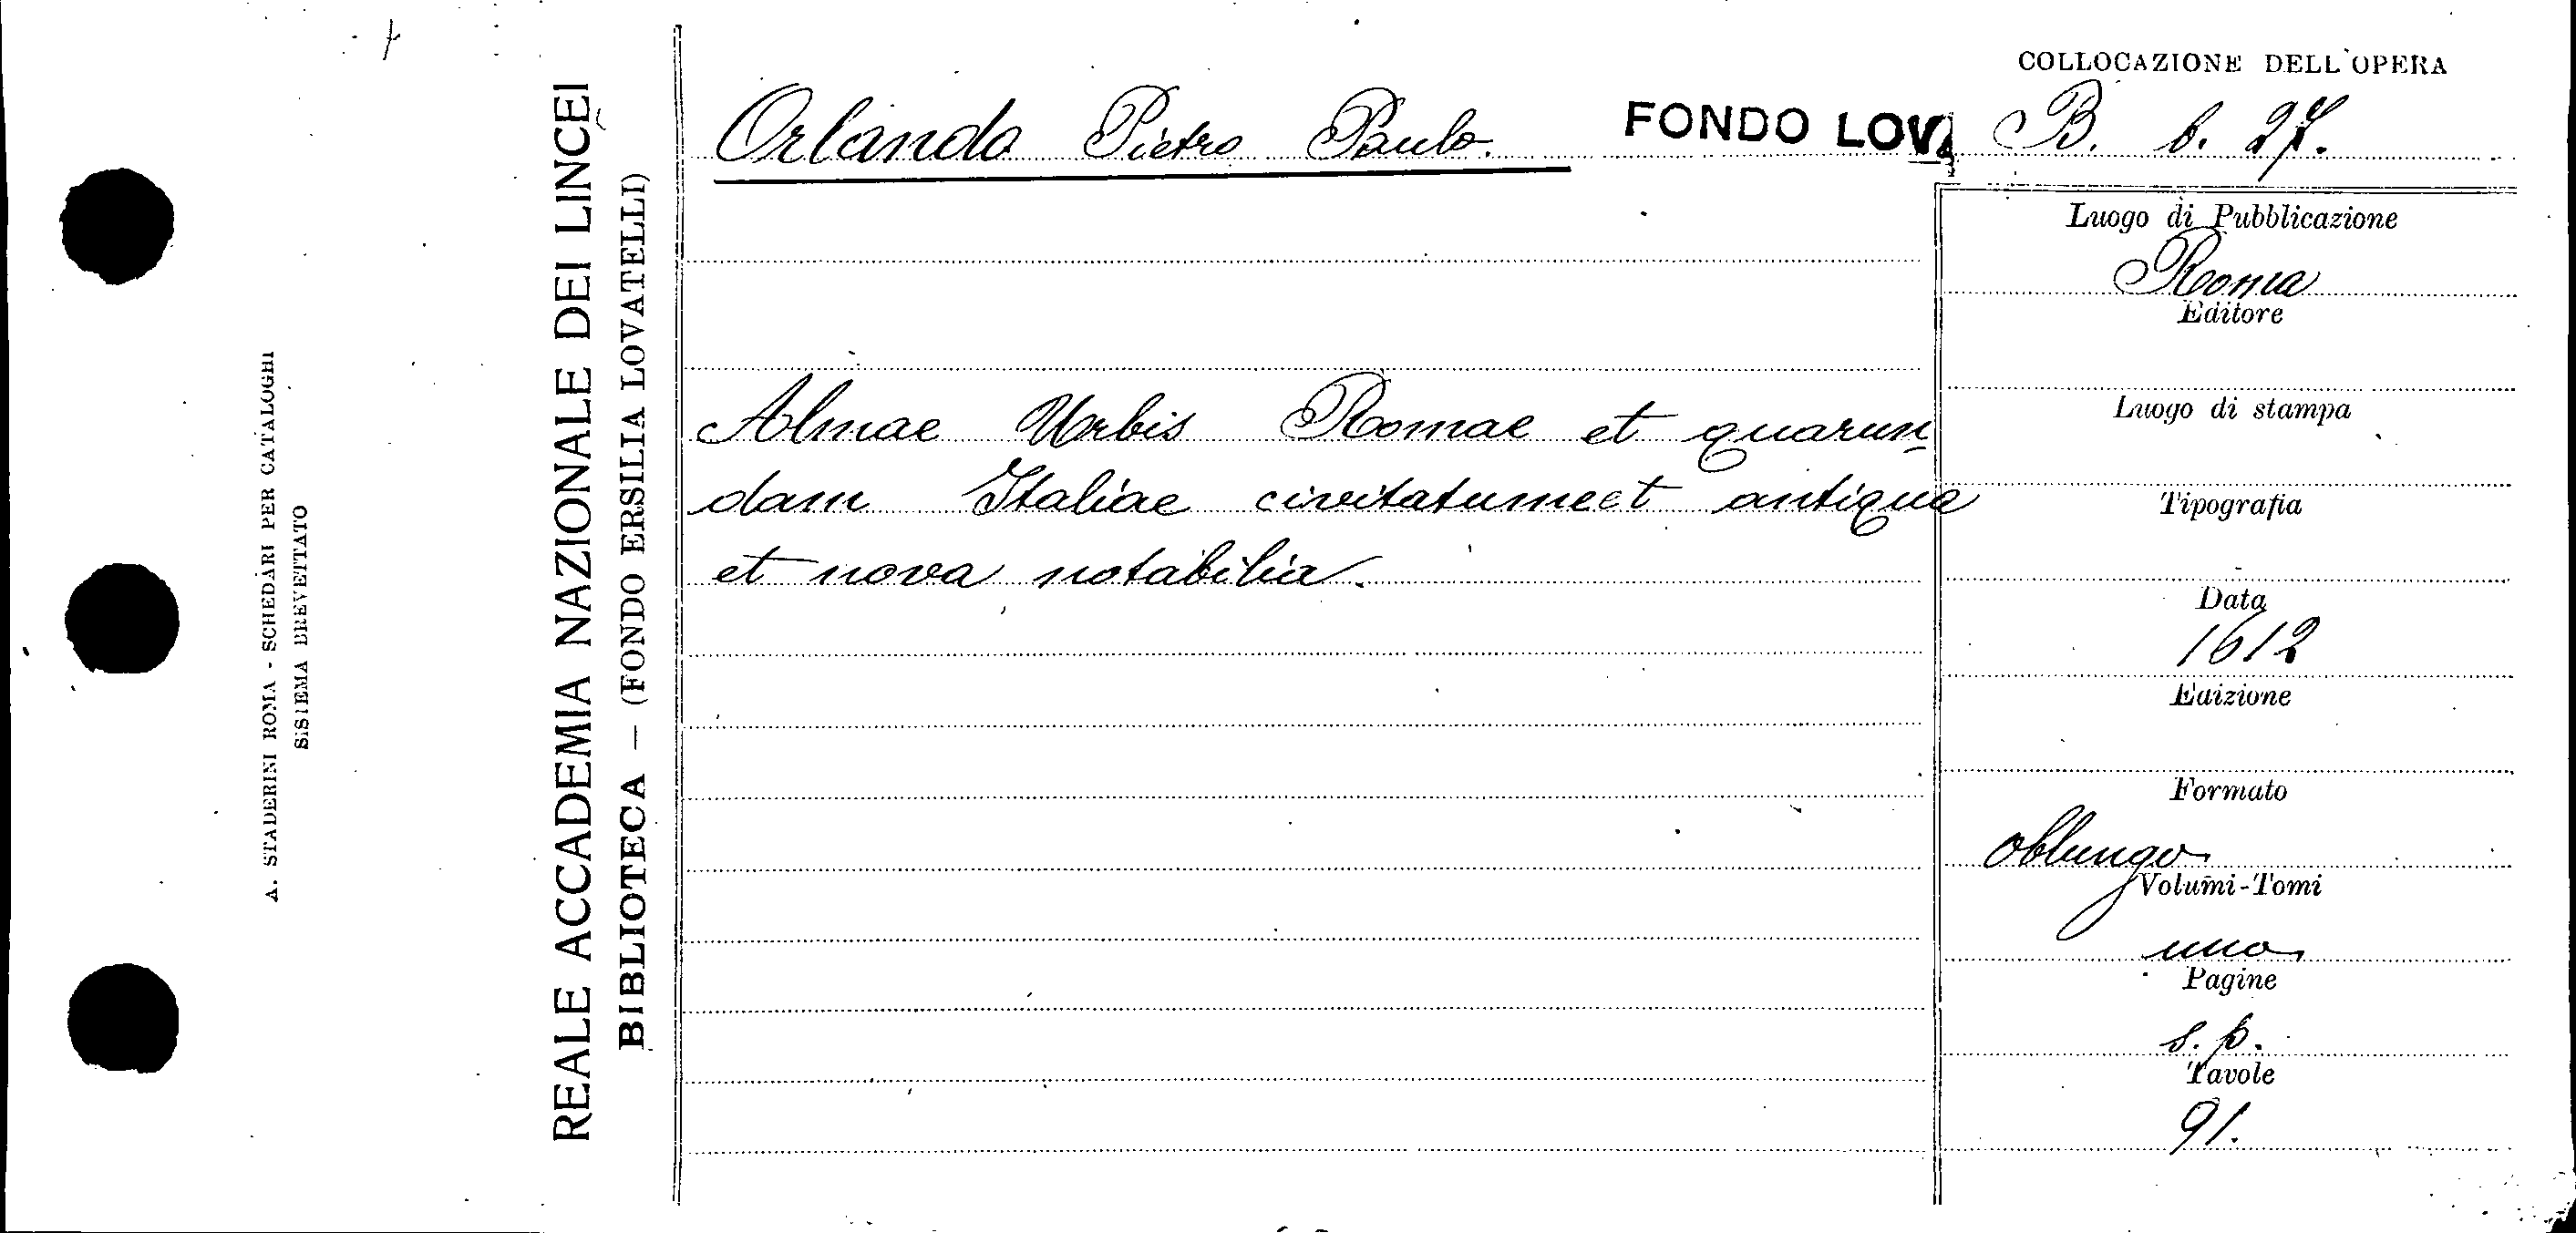 COLLOCAZIONE DELL'OPERA
Orlando Pietro Paulo.
FONDO LOV.
B. b. 27.
Almae Urbis Romae et quarun-
dam Italiae civitatumeet antiqua
et nova notabilia.
Luogo di Pubblicazione
Roma
Editore
Luogo di stampa
Tipografia
Data
1612
Edizione
Formato
oblungo
Volumi-Tomi
uno
Pagine
s. p.
Tavole
91.
REALE ACCADEMIA NAZIONALE DEI LINCEI
BIBLIOTECA — (FONDO ERSILIA LOVATELLI)
A. STADERINI ROMA - SCHEDARI PER CATALOGHI
SISTEMA BREVETTATO